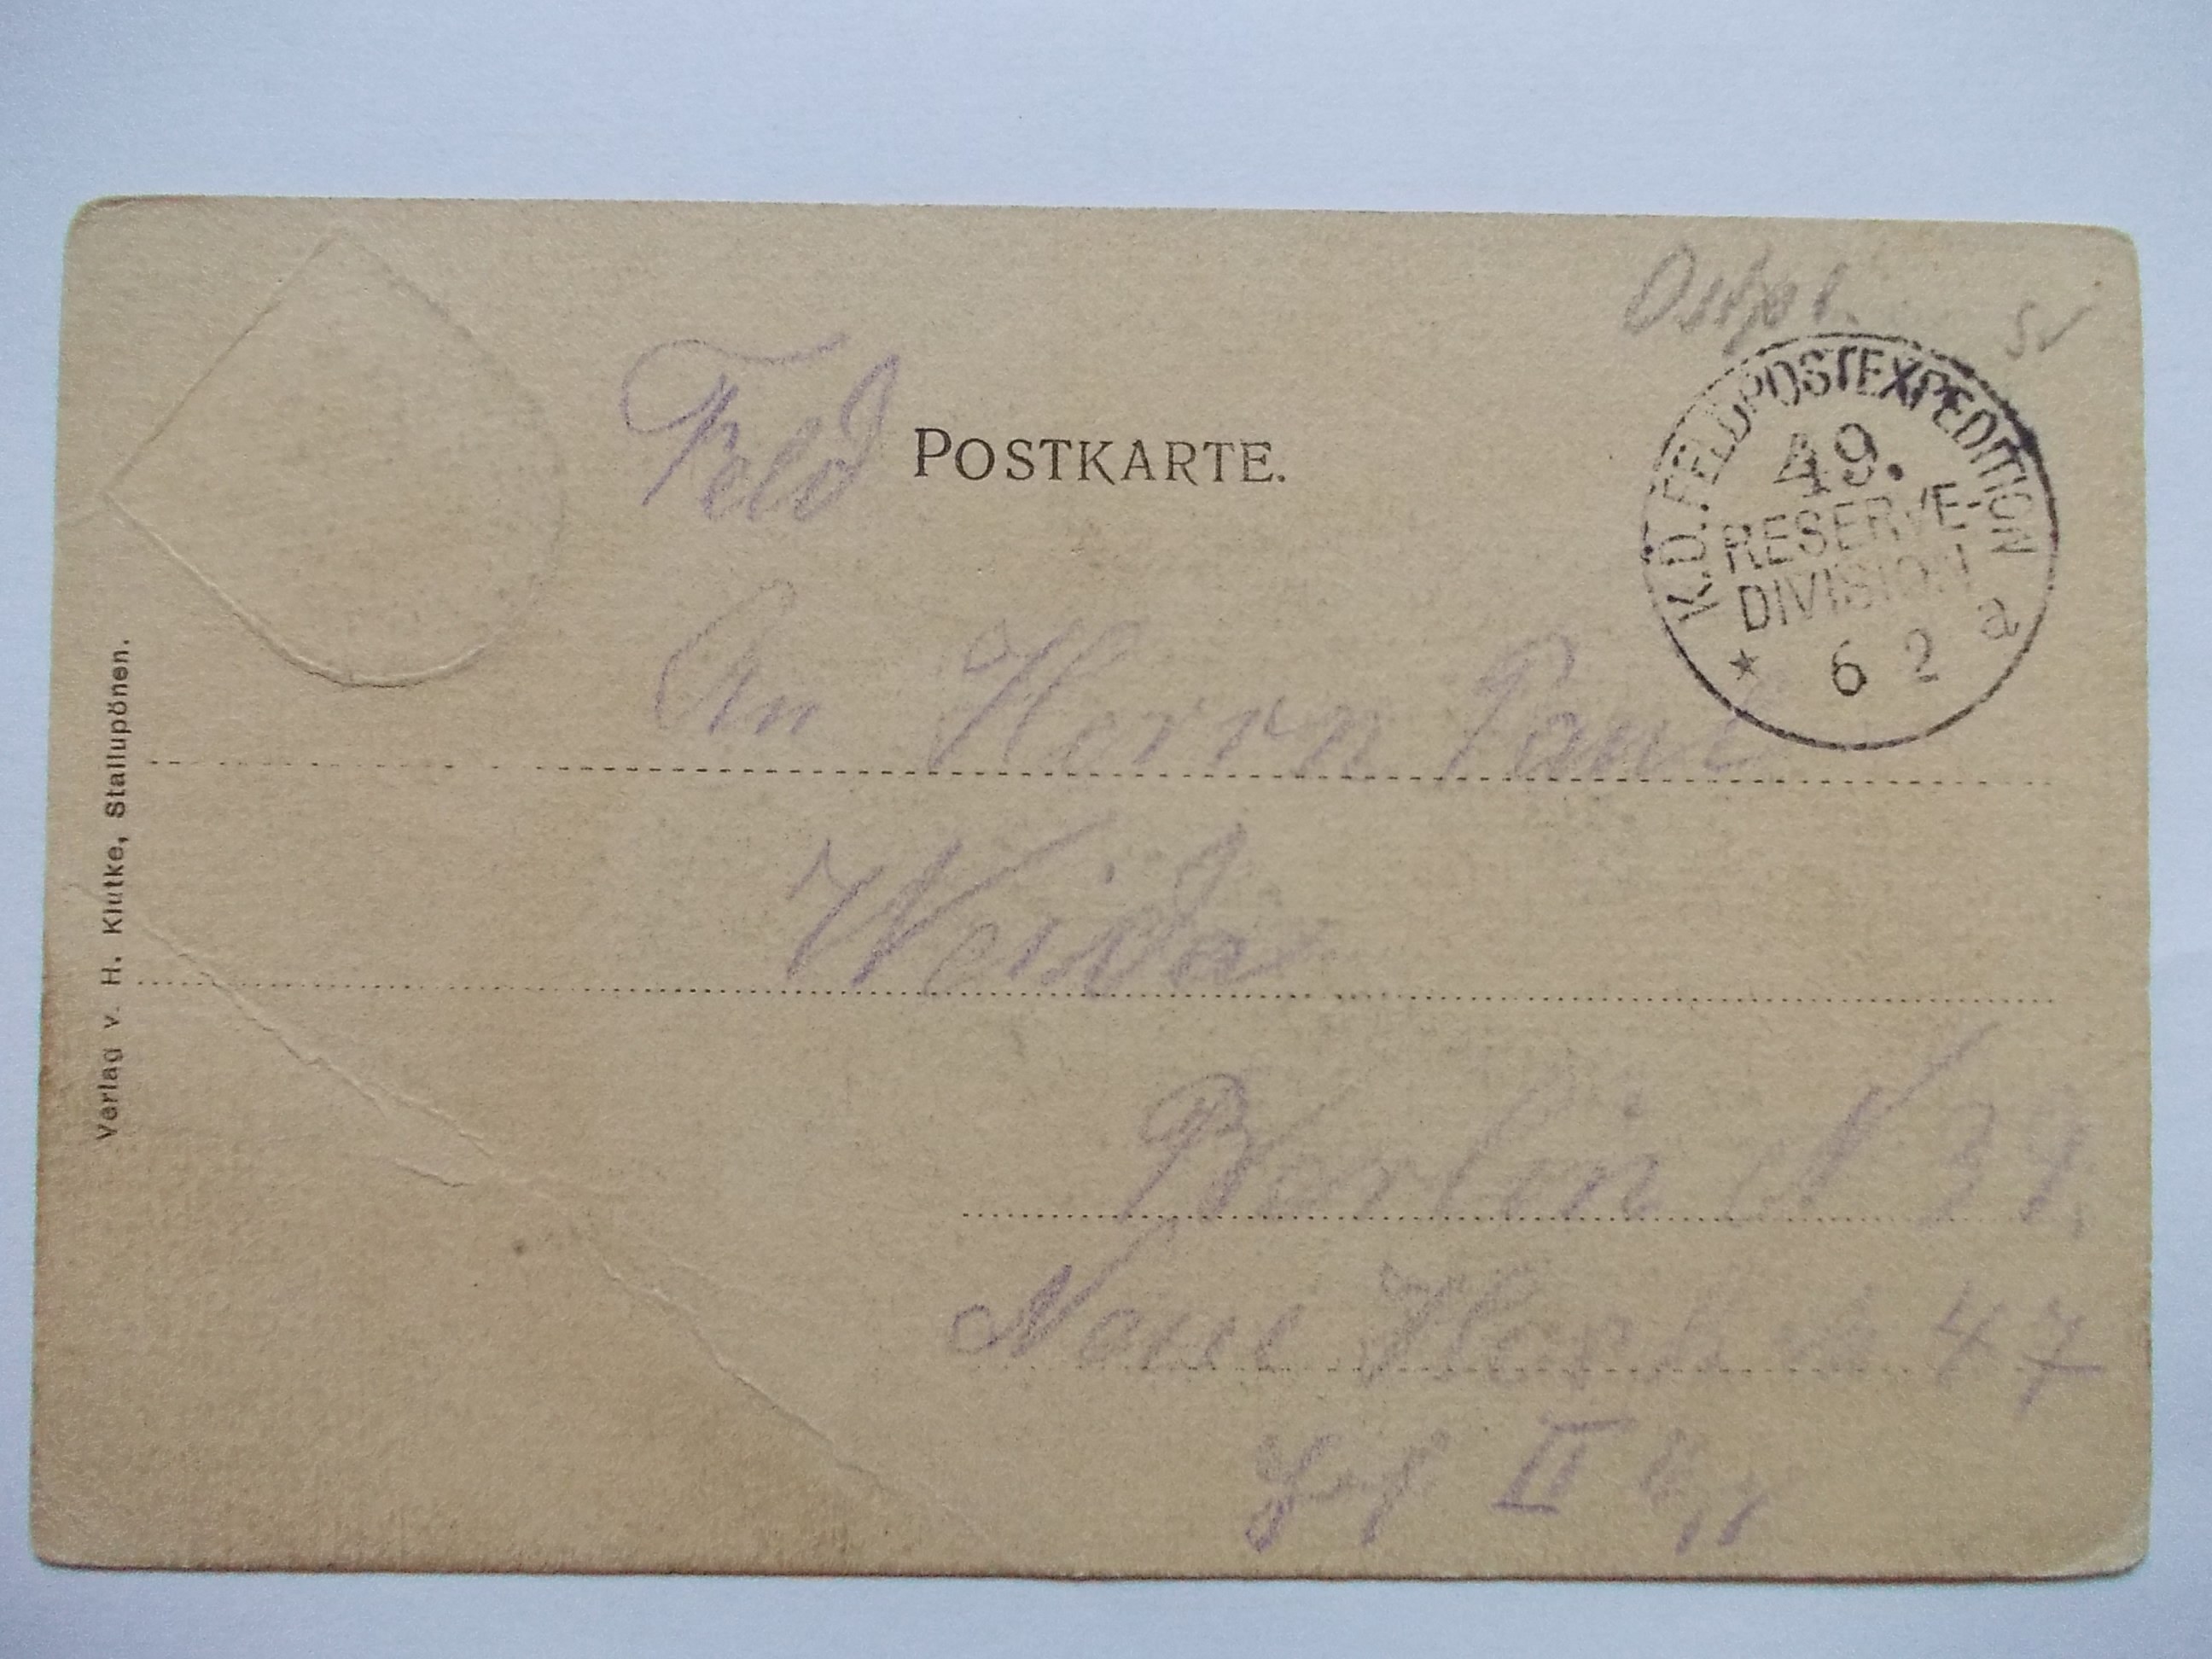 Ostpr.
Feld POSTKARTE.
K.D. FELDPOSTEXPEDITION
49.
RESERVE-
DIVISION
a
* 6 2
An Herrn Paul
Weida
Berlin N 39.
Neue Hoch 47
Hof II
Verlag v. H. Klutke, Stallupönen.